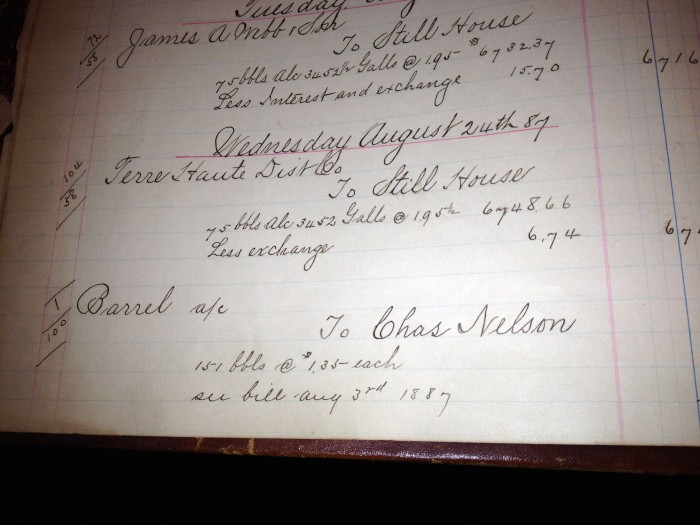 Tuesday Aug
72/58 James A Webb & Son
To Still House
75 bbls Alc 3452½ Galls @ 1.95 $6732.37
Less Interest and exchange 15.70 6716
Wednesday August 24th 87
104/58 Terre Haute Dist Co
To Still House
75 bbls Alc 3452 Galls @ 1.95½ 6748.66
Less exchange 6.74 67
1/100 Barrel a/c
To Chas Nelson
151 bbls @ $1.35 each
see bill aug 3rd 1887